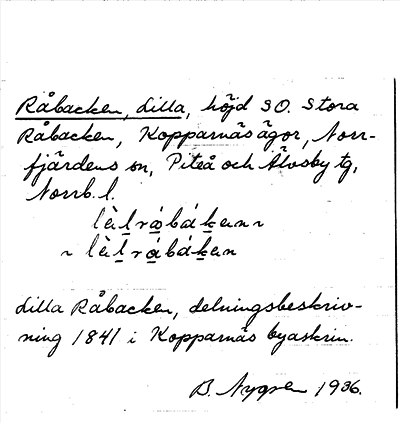 Råbacken, Lilla, höjd SO. Stora
Råbacken, Kopparnäs ägor, Norr-
fjärdens sn, Piteå och Älvsby tg,
Norrb. l.
Lilla Råbacken, delningsbeskriv-
ning 1841 i Kopparnäs byaskrin.
B. Nygren 1936.